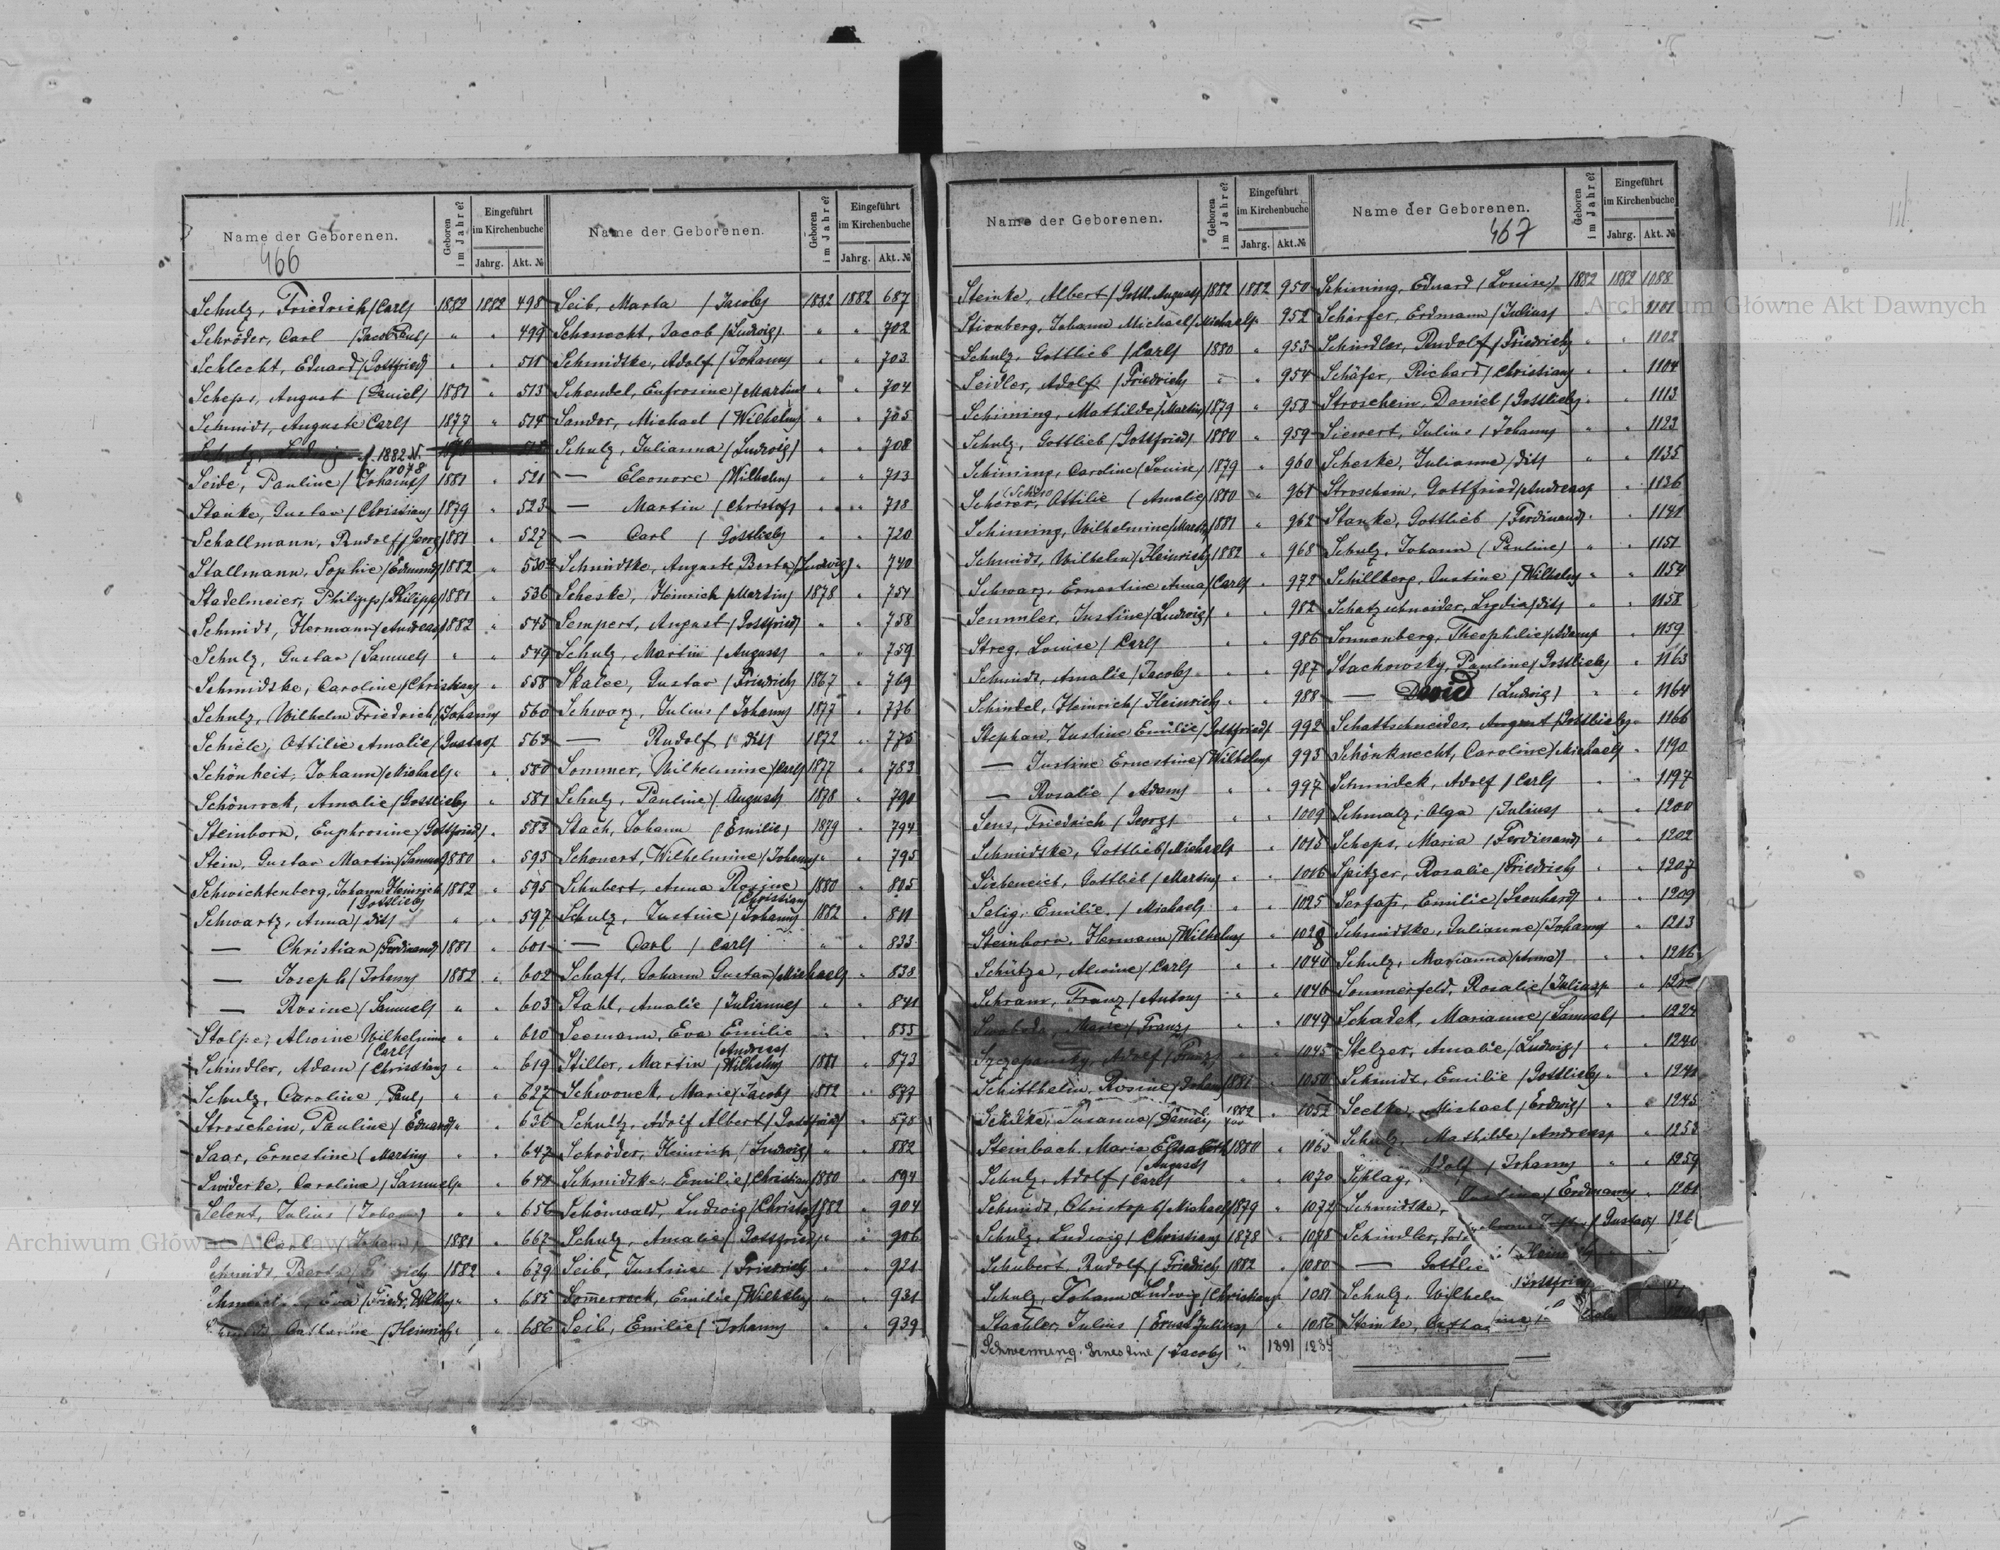 Name der Geborenen.
Geboren im Jahre?
Eingeführt im Kirchenbuche
Jahrg. Akt. №
466
Schulz, Friedrich /Carl/ 1882 1882 498
Schröder, Carl /Jacob Paul/ " " 499
Schlecht, Eduard /Gottfried/ " " 511
Scheps, August /Daniel/ 1881 " 513
Schmidt, Auguste /Carl/ 1877 " 514
1882 N. 1078
Seide, Pauline /Johann/ 1881 " 521
Stanke, Gustav /Christian/ 1879 " 523
Schallmann, Rudolf /Georg/ 1881 " 527
Stallmann, Sophie /Edmund/ 1882 " 530
Stadelmeier, Philipp /Philipp/ 1881 " 536
Schmidt, Hermann /Andreas/ 1882 " 545
Schulz, Gustav /Samuel/ " " 549
Schmidtke, Caroline /Christian/ " 558
Schulz, Wilhelm Friedrich /Johann/ " 560
Schiele, Ottilie Amalie /Gustav/ " 563
Schönheit, Johann /Michael/ " " 580
Schönrock, Amalie /Gottlieb/ " 581
Steinborn, Euphrosine /Gottfried/ " 583
Stein, Gustav Martin /Samuel/ 1880 " 593
Schwichtenberg, Johann Heinrich /Gottlieb/ 1882 " 595
Schwartz, Anna /dit/ " " 597
— Christian /Ferdinand/ 1881 " 601
— Joseph /Johann/ 1882 " 602
— Rosine /Samuel/ " " 603
Stolpe, Alwine Wilhelmine /Carl/ " " 610
Schindler, Adam /Christian/ " " 619
Schulz, Caroline /Paul/ " " 627
Stroschein, Pauline /Eduard/ " " 636
Saar, Ernestine /Martin/ " " 647
Swiderke, Caroline /Samuel/ " " 648
Selent, Julius /Johann/ " " 656
— Carl /Johann/ 1881 " 662
Bert 1882 " 679
Eva /Friedr. Wilh/ " " 685
Catharine /Heinrich/ " " 686
Name der Geborenen.
Geboren im Jahre?
Eingeführt im Kirchenbuche
Jahrg. Akt. №
Seib, Marta /Jacob/ 1882 1882 687
Schmeckt, Jacob /Ludwig/ " " 702
Schmidtke, Adolf /Johann/ " " 703
Schendel, Eufrosine /Martin/ " " 704
Sandor, Michael /Wilhelm/ " " 705
Schulz, Julianna /Ludwig/ " " 708
— Eleonore /Wilhelm/ " " 713
— Martin /Christof/ " " 718
— Carl /Gottlieb/ " " 720
Schmidtke, Auguste Berta /Ludwig/ " 740
Scheske, Heinrich /Martin/ 1878 " 751
Sempert, August /Gottfried/ " " 758
Schulz, Martin /August/ " " 759
Skalee, Gustav /Friedrich/ 1867 " 769
Schwarz, Julius /Johann/ 1877 " 776
— Rudolf /dit/ 1872 " 775
Sommer, Wilhelmine /Carl/ 1877 " 783
Schulz, Pauline /August/ 1878 " 790
Stach, Johann /Emilie/ 1879 " 794
Schonert, Wilhelmine /Johann/ " " 795
Schubert, Anna Rosine /Christian/ 1880 " 805
Schulz, Justine /Johann/ 1882 " 811
— Carl /Carl/ " " 833
Schaft, Johann Gustav /Michael/ " 838
Stahl, Amalie /Julianne/ " " 841
Seemann, Eva Emilie /Andreas/ " 855
Stiller, Martin /Wilhelm/ 1881 " 873
Schwonek, Marie /Jacob/ 1882 " 877
Schultz, Adolf Albert /Gottfried/ " 878
Schröder, Heinrich /Ludwig/ " " 882
Schmidtke, Emilie /Christian/ 1880 " 894
Schönwald, Ludwig /Christof/ 1882 " 904
Schulz, Amalie /Gottfried/ " " 906
Seib, Justine /Friedrich/ " " 921
Sommerrock, Emilie /Wilhelm/ " " 931
Seib, Emilie /Johann/ " " 939
Name der Geborenen.
Geboren im Jahre?
Eingeführt im Kirchenbuche
Jahrg. Akt. №
Steinke, Albert /Gottl. August/ 1882 1882 950
Stionberg, Johann Michael /Michael/ " 952
Schulz, Gottlieb /Carl/ 1880 " 953
Seidler, Adolf /Friedrich/ " " 954
Schirning, Mathilde /Martin/ 1879 " 958
Schulz, Gottlieb /Gottfried/ 1880 " 959
Schirning, Caroline /Louise/ 1879 " 960
Scherer, Ottilie /Amalie/ 1880 " 961
Schirning, Wilhelmine /Martin/ 1881 " 962
Schmidt, Wilhelm /Heinrich/ 1882 " 968
Schwarz, Ernestine Anna /Carl/ " 972
Semmler, Justine /Ludwig/ " " 982
Streg, Louise /Carl/ " " 986
Schmidt, Amalie /Jacob/ " " 987
Schindel, Heinrich /Heinrich/ " " 988
Stephan, Justine Emilie /Gottfried/ " 992
— Justine Ernestine /Wilhelm/ 993
— Rosalie /Adam/ " " 997
Sens, Friedrich /Georg/ " " 1009
Schmidtke, Gottlieb /Michael/ " 1015
Siebeneich, Gottlieb /Martin/ " " 1016
Selig, Emilie /Michael/ " " 1025
Steinborn, Hermann /Wilhelm/ " 1028
Schütze, Alwine /Carl/ " " 1040
Schram, Franz /Anton/ " " 1046
Swoboda, Marie /Franz/ " " 1049
Szczepansky, Adolf /Franz/ " " 1045
Schitthelm, Rosine /Johann/ 1881 " 1050
Schilke, Susanna /Daniel/ 1882 " 1052
Steinbach, Maria Elisabeth /August/ 1880 " 1063
Schulz, Adolf /Carl/ " " 1070
Schmidt, Christoph /Michael/ 1879 " 1072
Schulz, Ludwig /Christian/ 1878 " 1078
Schubert, Rudolf /Friedrich/ 1882 " 1080
Schulz, Johann Ludwig /Christian/ " 1081
Staebler, Julius /Ernst Julius/ " 1086
Schwenning, Ernestine /Jacob/ " 1891 1285
Name der Geborenen.
467
Geboren im Jahre?
Eingeführt im Kirchenbuche
Jahrg. Akt. №
Schirning, Eduard /Louise/ 1882 1882 1088
Schärfer, Erdmann /Julius/ " " 1101
Schindler, Rudolf /Friedrich/ " " 1102
Schäfer, Richard /Christian/ " " 1104
Stroschein, Daniel /Gottlieb/ " " 1113
Siewert, Julius /Johann/ " " 1123
Scheske, Julianne /dit/ " " 1135
Stroschein, Gottfried /Andreas/ " 1136
Stanke, Gottlieb /Ferdinand/ " " 1141
Schulz, Johann /Pauline/ " " 1151
Schillberg, Justine /Wilhelm/ " " 1154
Schatzschneider, Lydia /dit/ " " 1158
Sonnenberg, Theophilie /Adam/ " 1159
Stachowsky, Pauline /Gottlieb/ " 1163
— David /Ludwig/ " " 1164
Schattschneider, August /Gottlieb/ " 1166
Schönknecht, Caroline /Michael/ " 1190
Schmidek, Adolf /Carl/ " " 1197
Schmalz, Olga /Julius/ " " 1200
Scheps, Maria /Ferdinand/ " " 1202
Spitzer, Rosalie /Friedrich/ " " 1207
Serfaß, Emilie /Leonhard/ " " 1209
Schmidtke, Julianne /Johann/ " 1213
Schulz, Marianna /Anna/ " " 1216
Sommerfeld, Rosalie /Julius/ "
Schadek, Marianne /Samuel/ " 1224
Stelzer, Amalie /Ludwig/ " " 1240
Schmidt, Emilie /Gottlieb/ " " 1241
Seelke, Michael /Erdwig/ " " 1245
Schulz, Mathilde /Andreas/ " 1253
Schlag, Adolf /Johann/ " " 1259
Schmidtke, Justina /Erdmann/ " 1261
Schindler, /Gustav/
— Gottlie /Hein
Schulz, Wilhelm /Gottfried
Steinke,
Archiwum Główne Akt Dawnych
Archiwum Główne Akt Dawnych